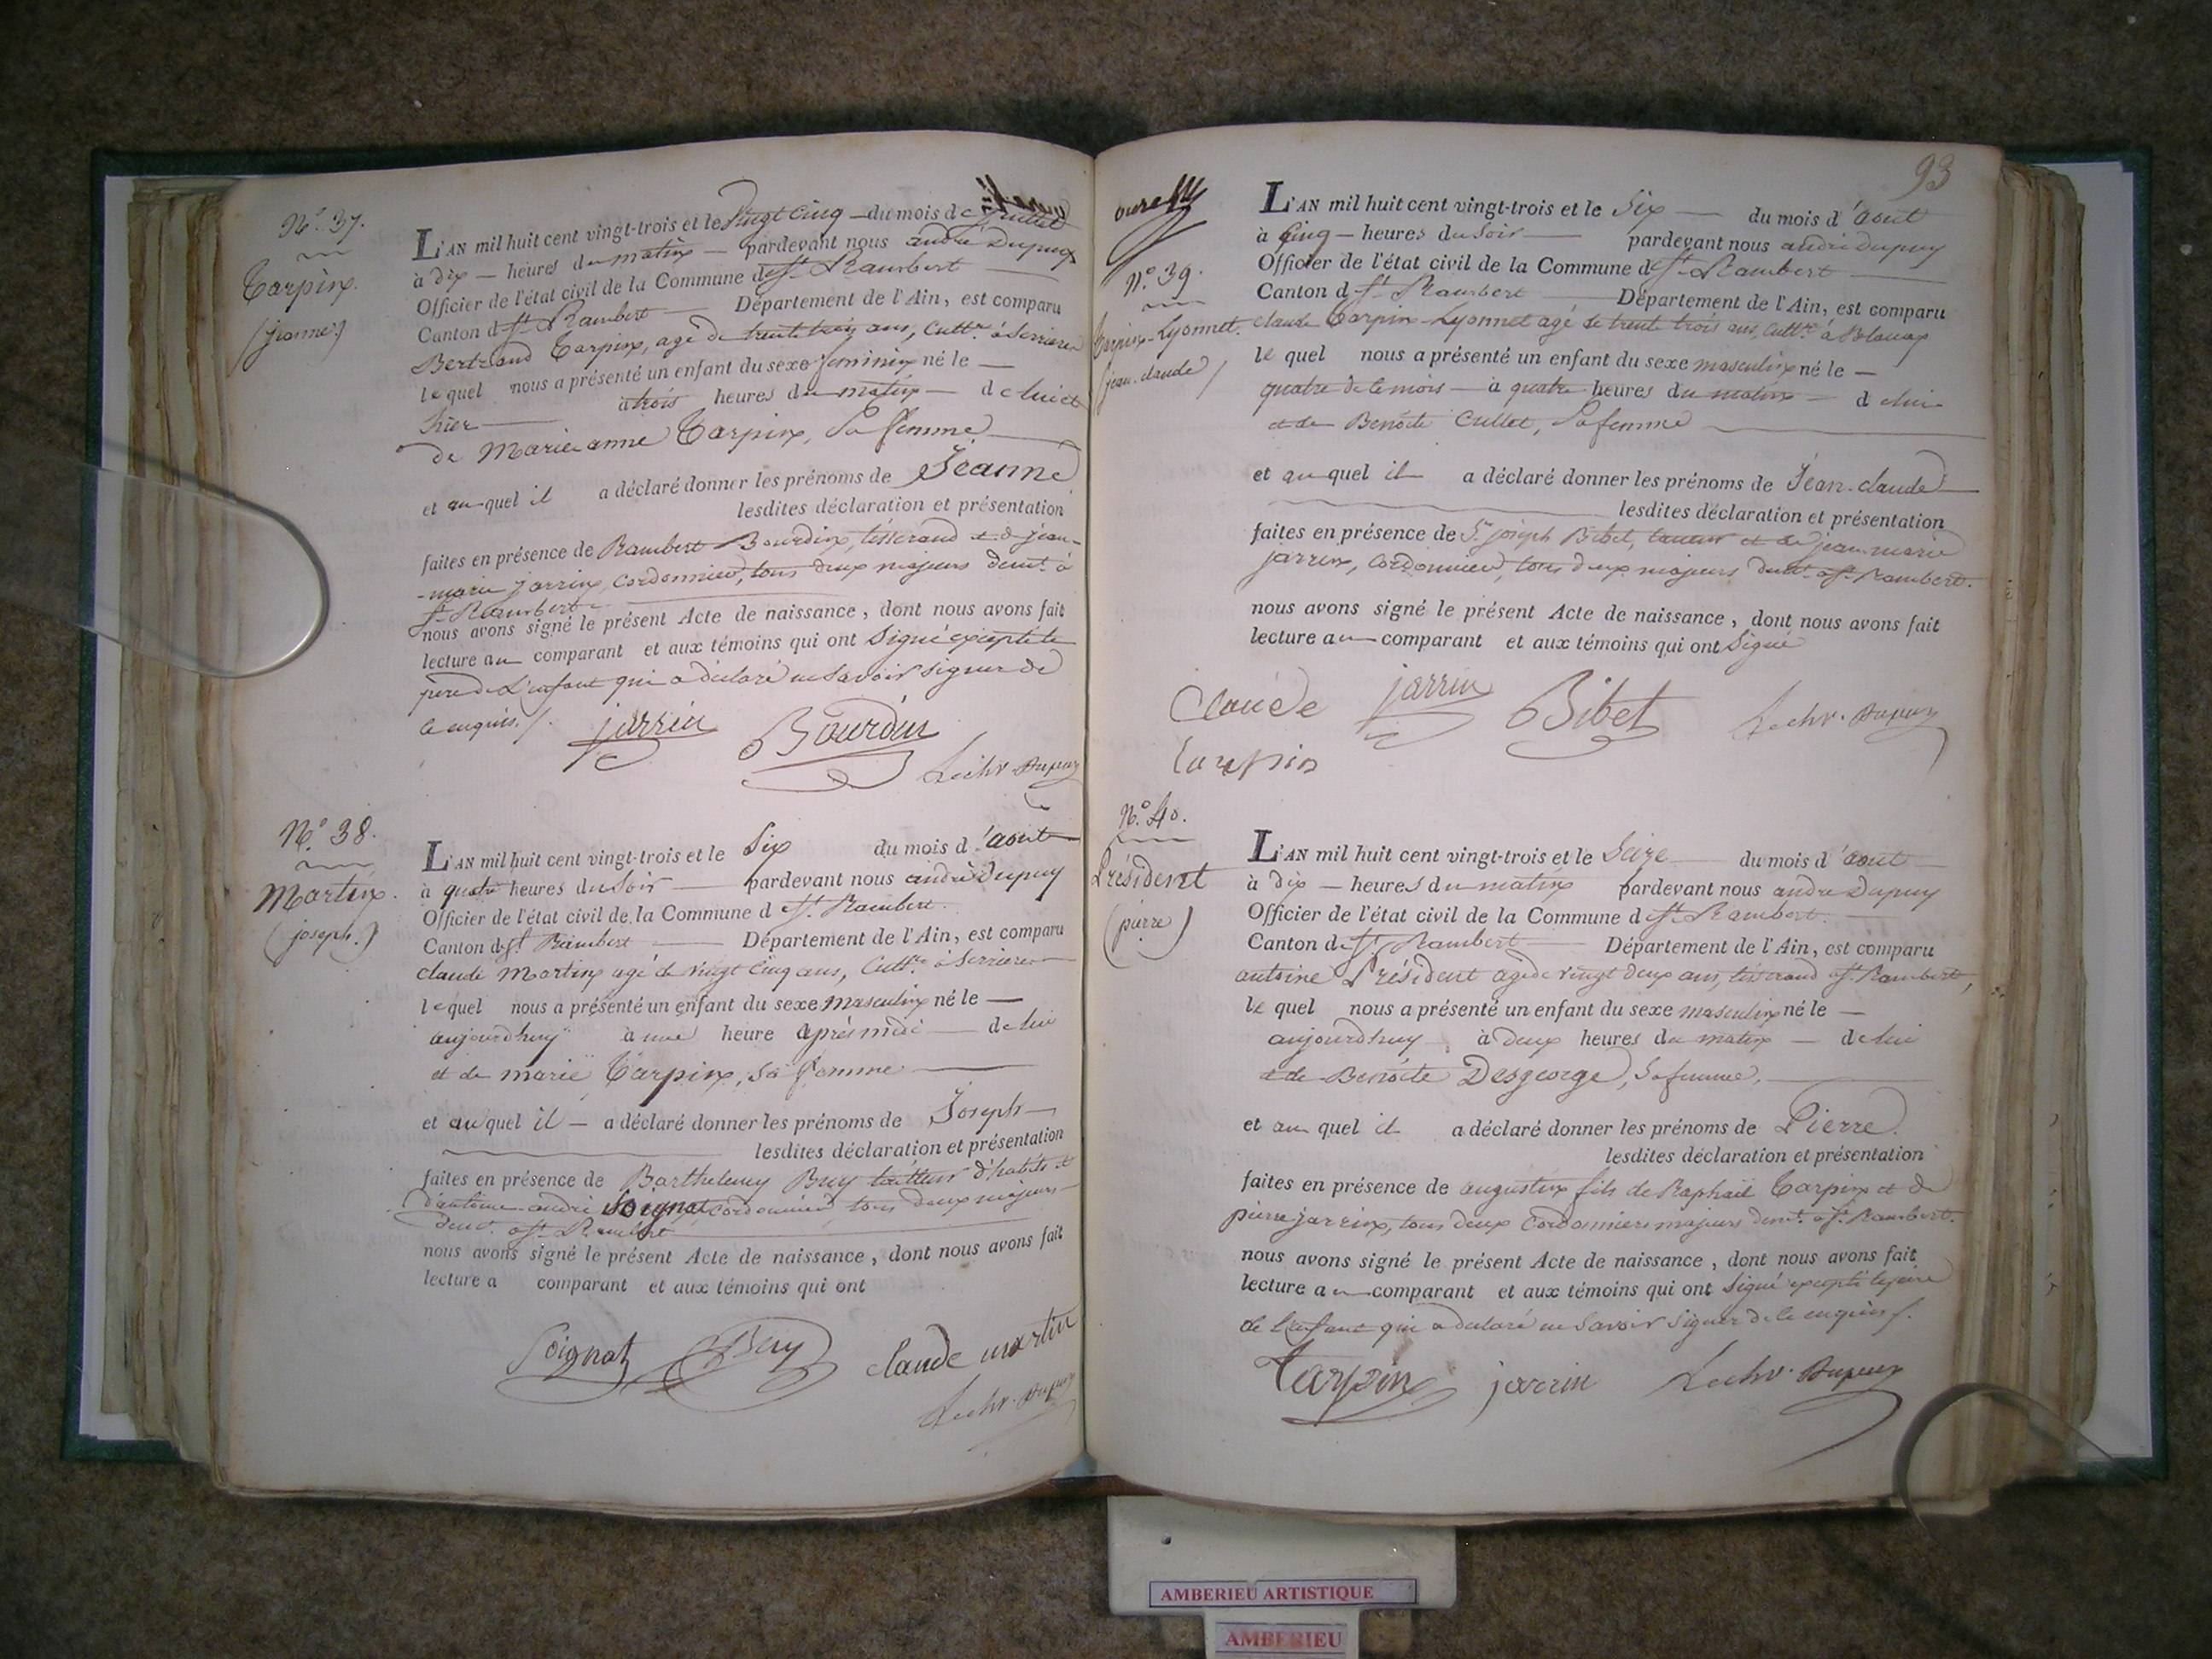 N.° 37.
Tarpin.
(jeanne)
L'AN mil huit cent vingt-trois et le Vingt Cinq du mois de juillet
à dix heures du matin pardevant nous andré Dupuy
Officier de l'état civil de la Commune de St. Rambert
Canton de St. Rambert Département de l'Ain, est comparu
Bertrand Tarpin, agé de trente trois ans, Cultr. à Serrieres
le quel nous a présenté un enfant du sexe feminin né le
hier à trois heures du matin de lui et
de Marie anne Tarpin, Sa femme
et au quel il a déclaré donner les prénoms de Jeanne
lesdites déclaration et présentation
faites en présence de Rambert Bourdin, tisserand et de jean-
-marie jarrin, Cordonnier, tous deux majeurs demt. à
St. Rambert
nous avons signé le présent Acte de naissance, dont nous avons fait
lecture au comparant et aux témoins qui ont Signé excepté le
pere de L'enfant qui a déclaré ne Savoir signer de
ce enquis /.
jarrin Bourdin Lechr. Dupuy
N.° 38.
Martin.
(joseph.)
L'AN mil huit cent vingt-trois et le Six du mois d'aout
à quatre heures du Soir pardevant nous andré Dupuy
Officier de l'état civil de la Commune d St. Rambert.
Canton de St Rambert Département de l'Ain, est comparu
claude Martin agé de vingt Cinq ans, Cultr. à Serrieres
le quel nous a présenté un enfant du sexe Masculin né le
aujourdhuy à une heure après midi de lui
et de marie Tarpin, sa femme
et au quel il a déclaré donner les prénoms de Joseph
lesdites déclaration et présentation
faites en présence de Barthelemy Buy tailleur d'habits et
d'antoine andré Soignat cordonnier tous deux majeurs
demt. à St. Rambert
nous avons signé le présent Acte de naissance, dont nous avons fait
lecture a comparant et aux témoins qui ont
Soignat Buy claude martin
Lechr. Dupuy
93
N.° 39.
Tarpin-Lyonnet.
(jean-claude)
L'AN mil huit cent vingt-trois et le Six du mois d'aout
à Cinq heures du Soir pardevant nous andré Dupuy
Officier de l'état civil de la Commune de St. Rambert
Canton d St. Rambert Département de l'Ain, est comparu
claude Tarpin-Lyonnet agé de trente trois ans, Cultr. à Blanay
le quel nous a présenté un enfant du sexe masculin né le
quatre de ce mois à quatre heures du matin de lui
et de Benoite Cullet, Sa femme
et au quel il a déclaré donner les prénoms de Jean-claude
lesdites déclaration et présentation
faites en présence de Sr. joseph Bibet, taneur et de jean-marie
jarrin, Cordonnier, tous deux majeurs demt. à St. Rambert.
nous avons signé le présent Acte de naissance, dont nous avons fait
lecture au comparant et aux témoins qui ont Signé
Claude jarrin Bibet Lechr. Dupuy
tarpin
N.° 40.
Président
(pierre)
L'AN mil huit cent vingt-trois et le Seize du mois d'aout
à dix heures du matin pardevant nous andré Dupuy
Officier de l'état civil de la Commune d St. Rambert.
Canton de St. Rambert Département de l'Ain, est comparu
antoine Président agé de vingt deux ans, tisserand à St. Rambert,
le quel nous a présenté un enfant du sexe masculin né le
aujourdhuy à deux heures du matin de lui
et de Benoite Desgeorge, Sa femme,
et au quel il a déclaré donner les prénoms de Pierre.
lesdites déclaration et présentation
faites en présence de augustin fils de Raphaël Tarpin et de
pierre jarrin, tous deux Cordonniers majeurs demt. à St. Rambert.
nous avons signé le présent Acte de naissance, dont nous avons fait
lecture au comparant et aux témoins qui ont Signé excepté le pere
de l'enfant qui a déclaré ne Savoir Signer de ce enquis /.
Tarpin jarrin Lechr. Dupuy
AMBERIEU ARTISTIQUE
AMBERIEU